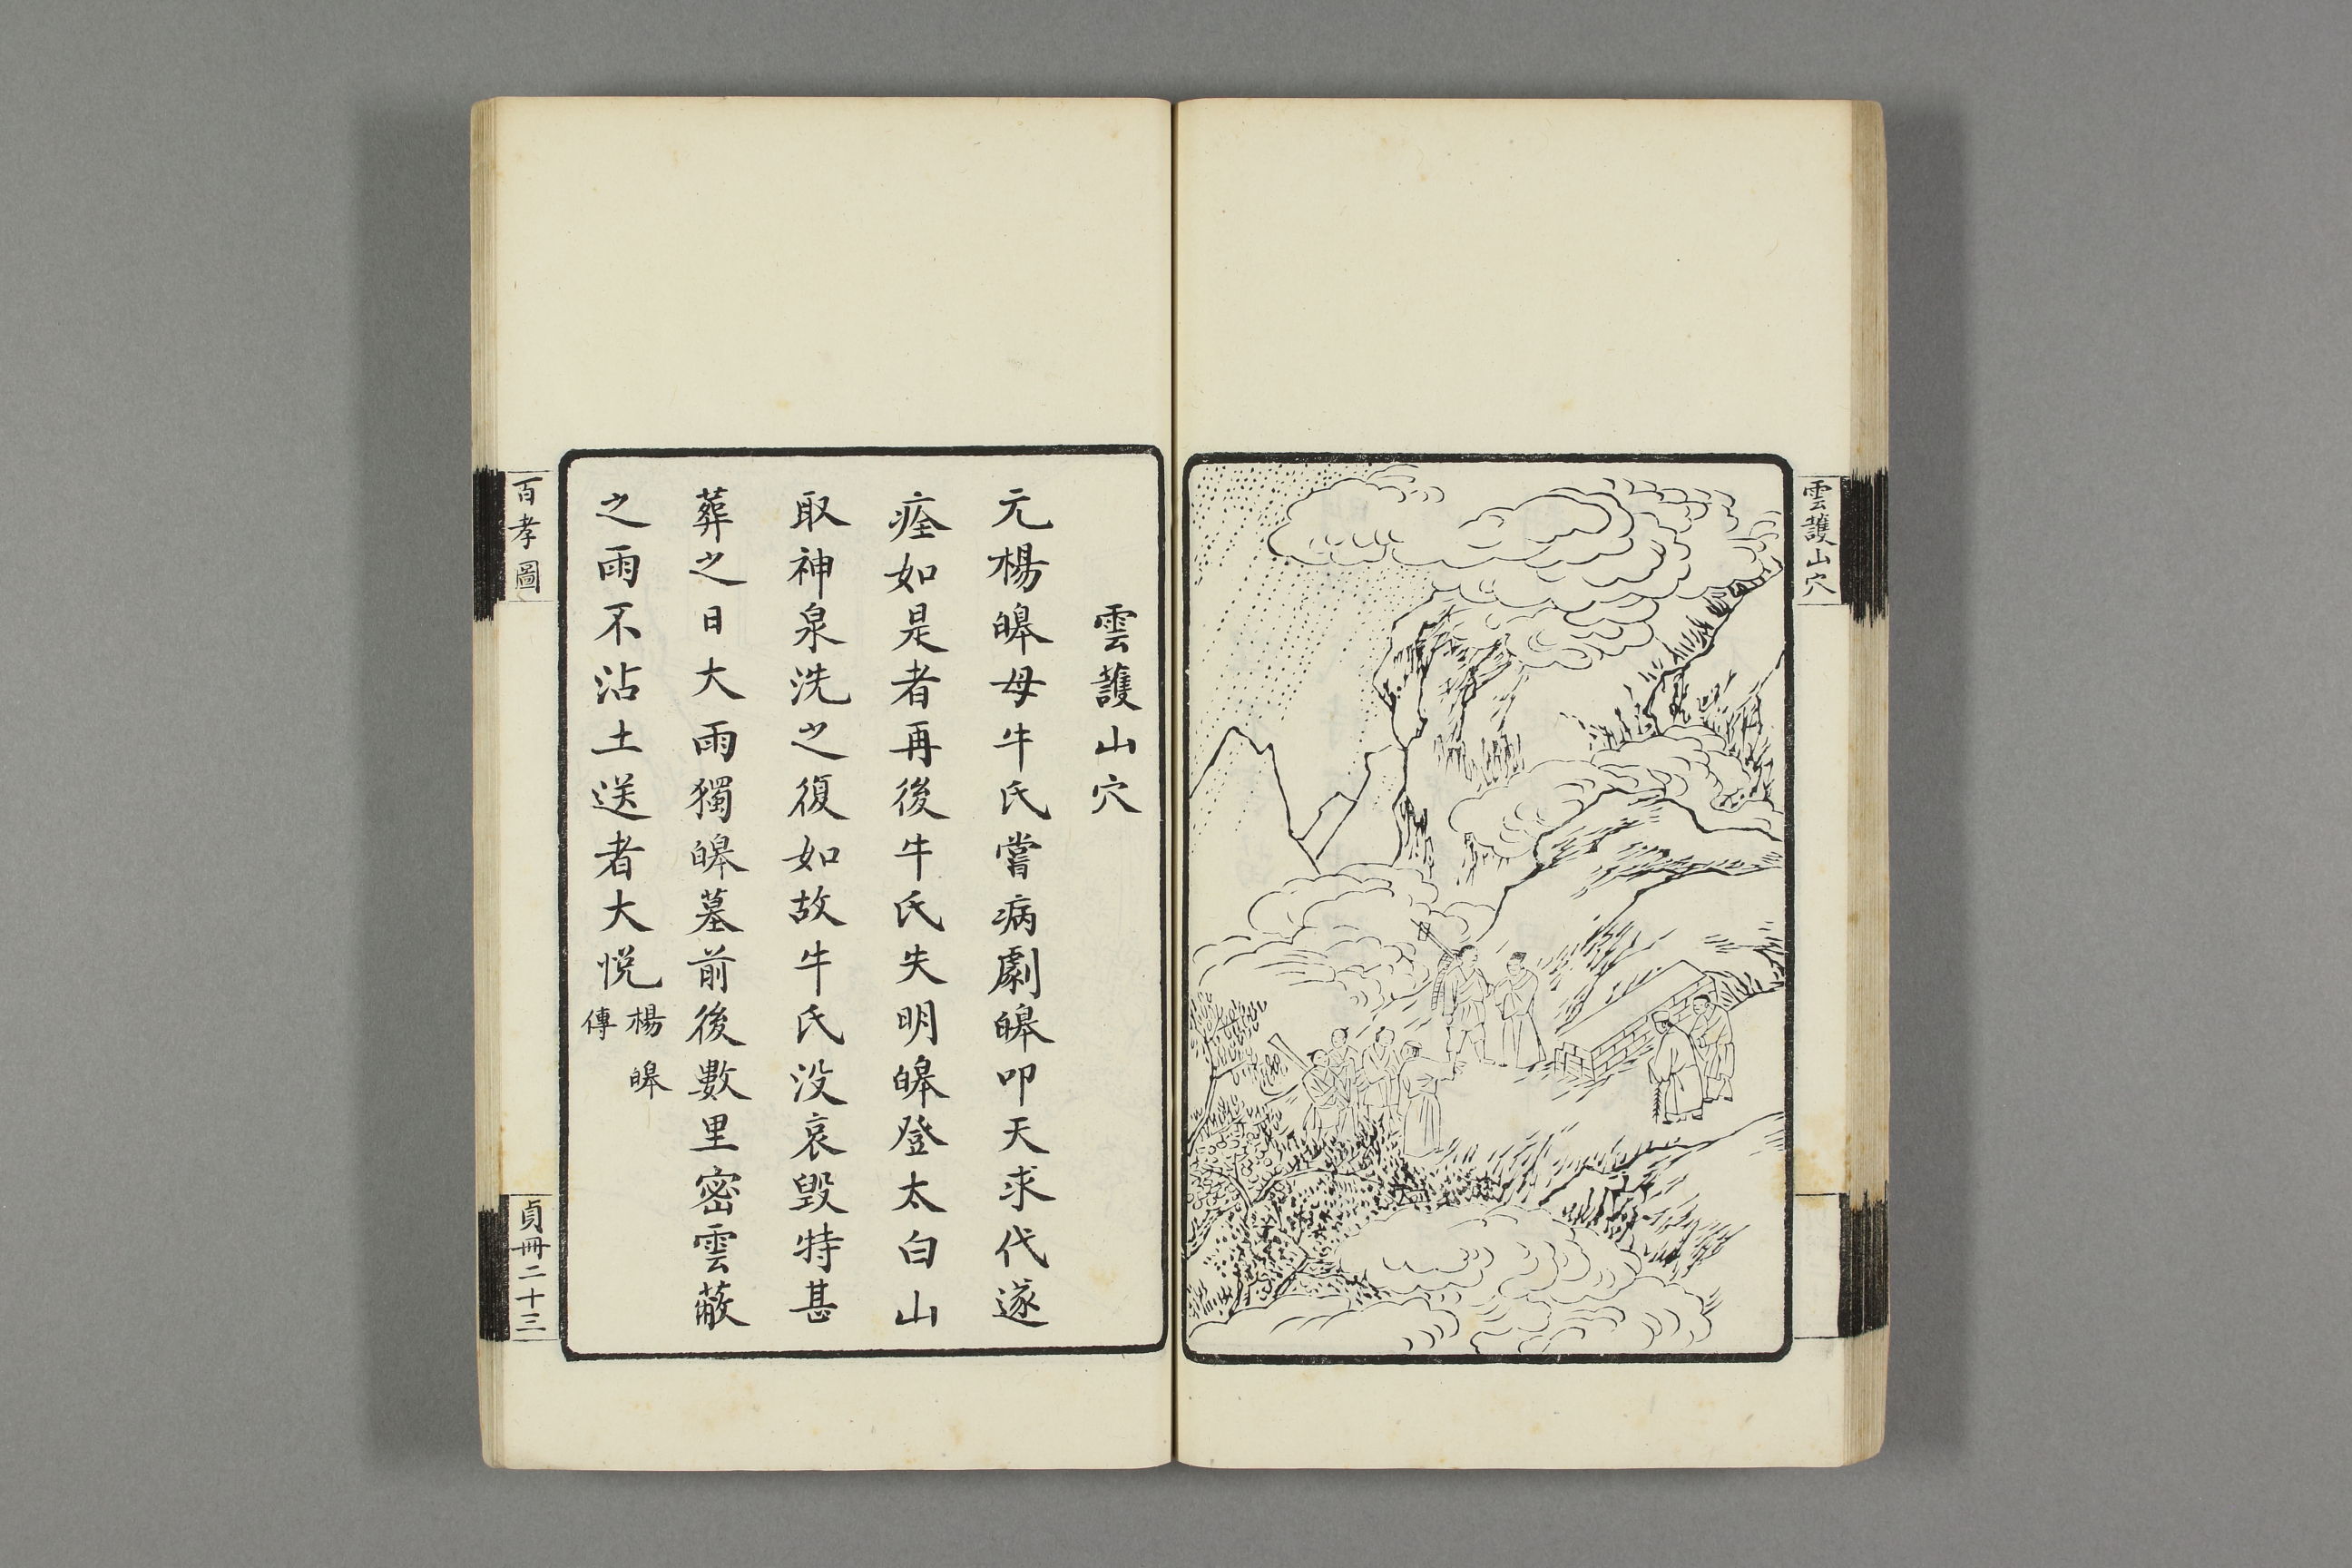 雲䕶山穴
雲䕶山穴
元楊皞母牛氏嘗病劇皞叩天求代遂
痊如是者再後牛氏失明皞登太白山
取神泉洗之復如故牛氏没哀毁特甚
葬之日大雨獨皞墓前後數里密雲蔽
之雨不沾土送者大悦楊皞
傳
百孝圖
貞冊二十三